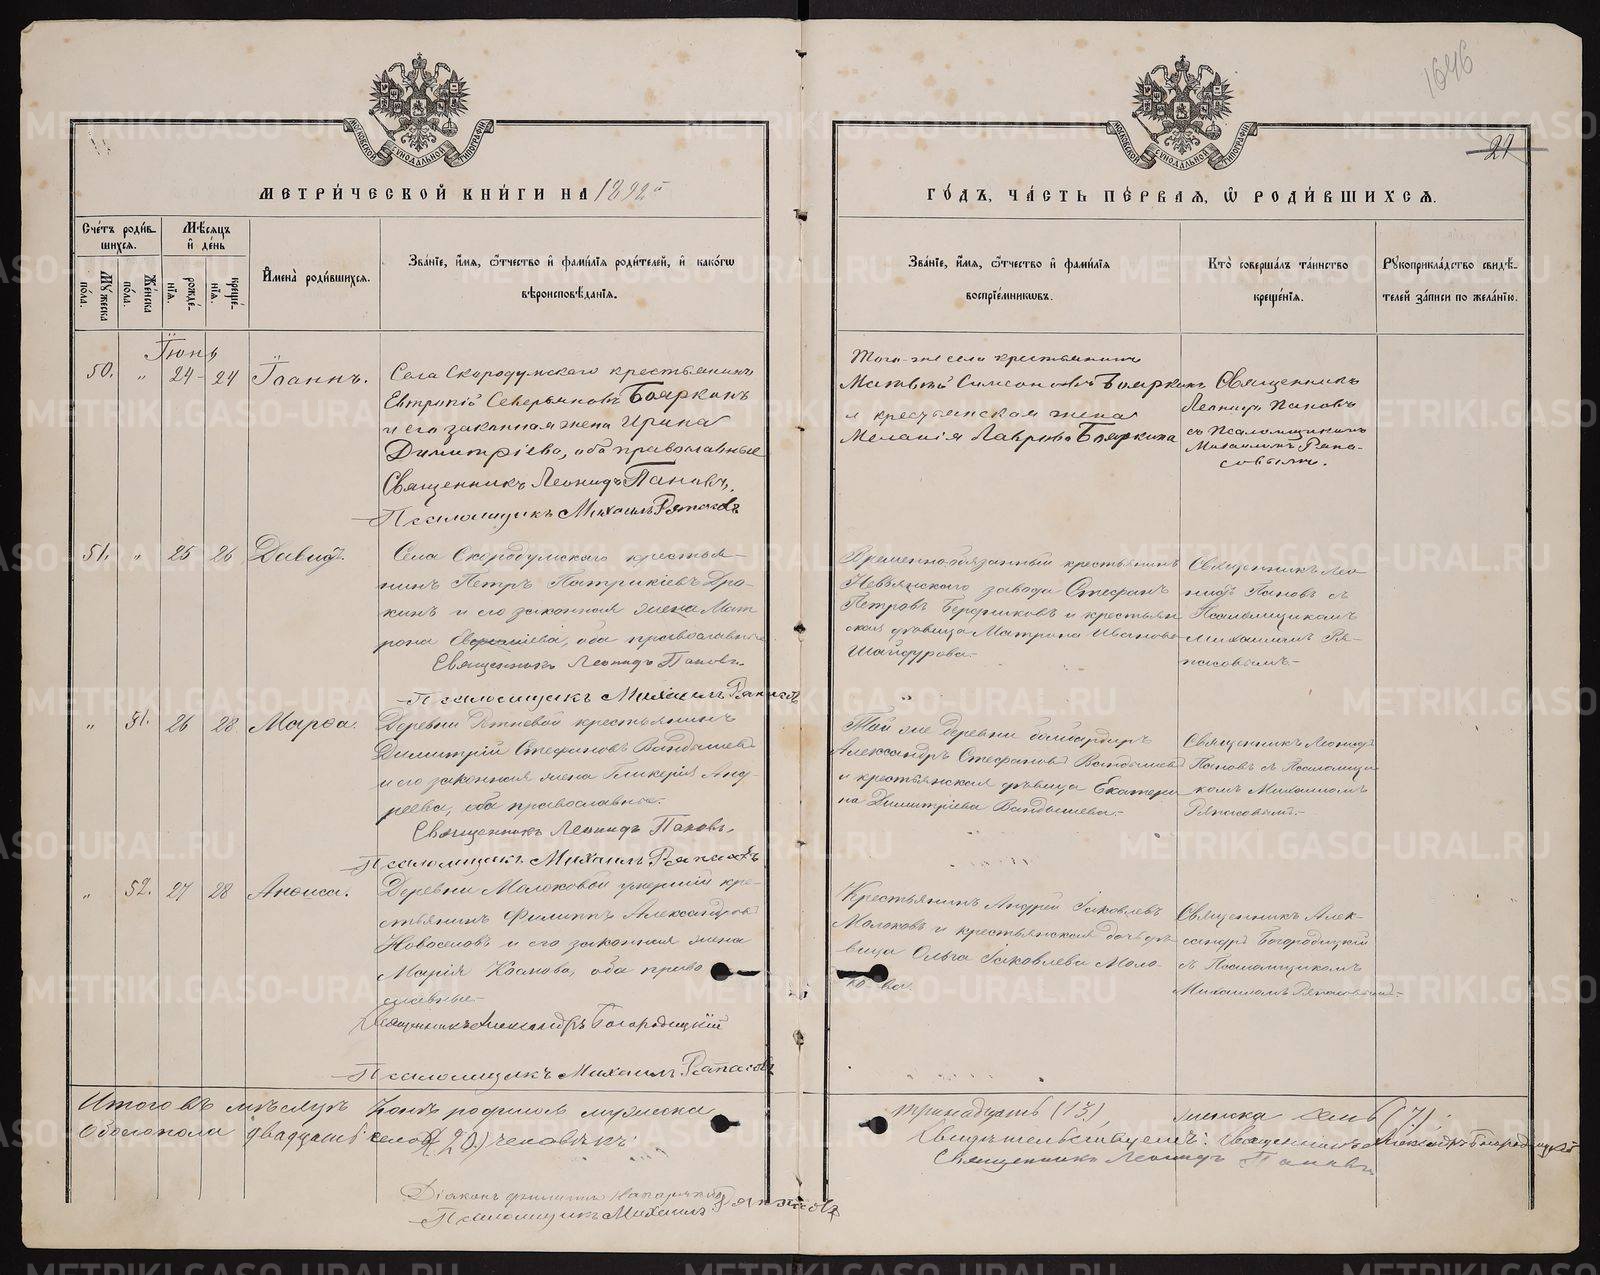 1646
21
МОСКОВСКОЙ СѴНОДАЛЬНОЙ ТИПОГРАФІИ
МОСКОВСКОЙ СѴНОДАЛЬНОЙ ТИПОГРАФІИ
МЕТРИ́ЧЕСКОЙ КНИ́ГИ НА 1892й
ГО́ДЪ, ЧА́СТЬ ПЕ́РВАЯ, Ѽ РОДИ́ВШИХСЯ.
Сче́тъ роди́вшихся.
Му́жеска по́ла.
Же́нска по́ла.
Мѣ́сяцъ и҆ де́нь
рожде́нїя.
креще́нїя.
И҆мена̀ роди́вшихся.
Зва́нїе, и҆́мя, ѻ҆́тчество и҆ фами́лїя роди́телей, и҆ како́гѡ
вѣроисповѣ́данїя.
Зва́нїе, и҆́мя, ѻ҆́тчество и҆ фами́лїя
воспрїе́мниковъ.
Кто̀ соверша́лъ та́инство
креще́нїя.
Рꙋкоприкла́дство свидѣ́телей за́писи по жела́нїю.
Іюнь
50. " 24 24 Іоаннъ.
Села Скородумскаго крестьянинъ
Евтропій Северьяновъ Бояркинъ
и его законная жена Ирина
Димитріева, оба православные
Священникъ Леонидъ Пановъ.
Псаломщикъ Михаилъ Ряпасовъ
Того-же села крестьянинъ
Матвѣй Симеоновъ Бояркинъ
и крестьянская жена
Меланія Лаврова Бояркина
Священникъ
Леонидъ Пановъ
съ Псаломщикомъ
Михаиломъ Ряпасовымъ.
51. " 25 26 Давидъ.
Села Скородумскаго крестья-
нинъ Петръ Патрикіевъ
и его законная жена Мат
рона оба православные
Священникъ Леонидъ Пановъ.
Псаломщикъ Михаилъ Ряпасовъ
Временнообязанный крестьянинъ
Невьянскаго завода Стефанъ
Петровъ и крестьян
ская дѣвица Матрона Иванова
Шайдурова.
Священникъ Лео
нидъ Пановъ съ
Псаломщикомъ
Михаиломъ Ря-
пасовымъ.
" 51. 26 28 Марѳа.
Деревни крестьянинъ
Димитрій Стефановъ Вандышевъ
и его законная жена Гликерія Анд-
реева, оба православные.
Священникъ Леонидъ Пановъ.
Псаломщикъ Михаилъ Ряпасовъ
Той же деревни бомбардиръ
Александръ Стефановъ Вандышевъ
и крестьянская дѣвица Екатери
на Димитріева Вандышева.
Священникъ Леонидъ
Пановъ съ Псаломщи
комъ Михаиломъ
Ряпасовымъ.
" 52. 27 28 Анѳиса.
Деревни Молоковой умершій кре-
стьянинъ Филиппъ Александровъ
Новоселовъ и его законная жена
Марія Космова, оба право
славные
Священникъ Александръ Богородицкій
Псаломщикъ Михаилъ Ряпасовъ
Крестьянинъ Андрей Іаковлевъ
Молоковъ и крестьянская дочь дѣ
вица Ольга Іаковлева Моло-
кова.
Священникъ Алек-
сандръ Богородицкій
съ Псаломщикомъ
Михаиломъ Ряпасовымъ
Итого въ мѣсяцѣ Іюнѣ родилось мужеска
тринадцать (13), женска семь (7).
Обоего пола двадцать (20) человѣкъ.
Свидѣтельствуемъ: Священникъ Александръ Богородицкій
Священникъ Леонидъ Пановъ
Діаконъ Филиппъ
Псаломщикъ Михаилъ Ряпасовъ
METRIKI.GASO-URAL.RU